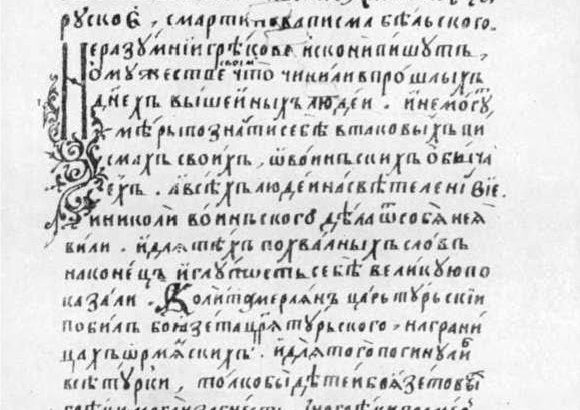 руское̑, смартинова писма бѣльского
Неразумнїи грѣкове исконипишутъ,
омужестве своим что чинили впрошлыхъ
днехъ вышейныхъ людей. инемогу
мѣры познати себѣ втаковыхъ пи
смахъ своихъ, ѿвоинъскихъ обыча
ехъ. авсѣхъ людей насвѣтеленївїе.
иниколи воинъского дѣла ѿсобя нея
вили. идлятѣхъ похвалныхъ словъ
наконецъ иглупость себѣ великую по
казали. Колитомерланъ царь турьскїи
побилъ боязета цр҃я турьского. награни
цахъ ѿрмянскихъ. идлятого погинули
всѣ турки, толкобы дѣтей боязетовы